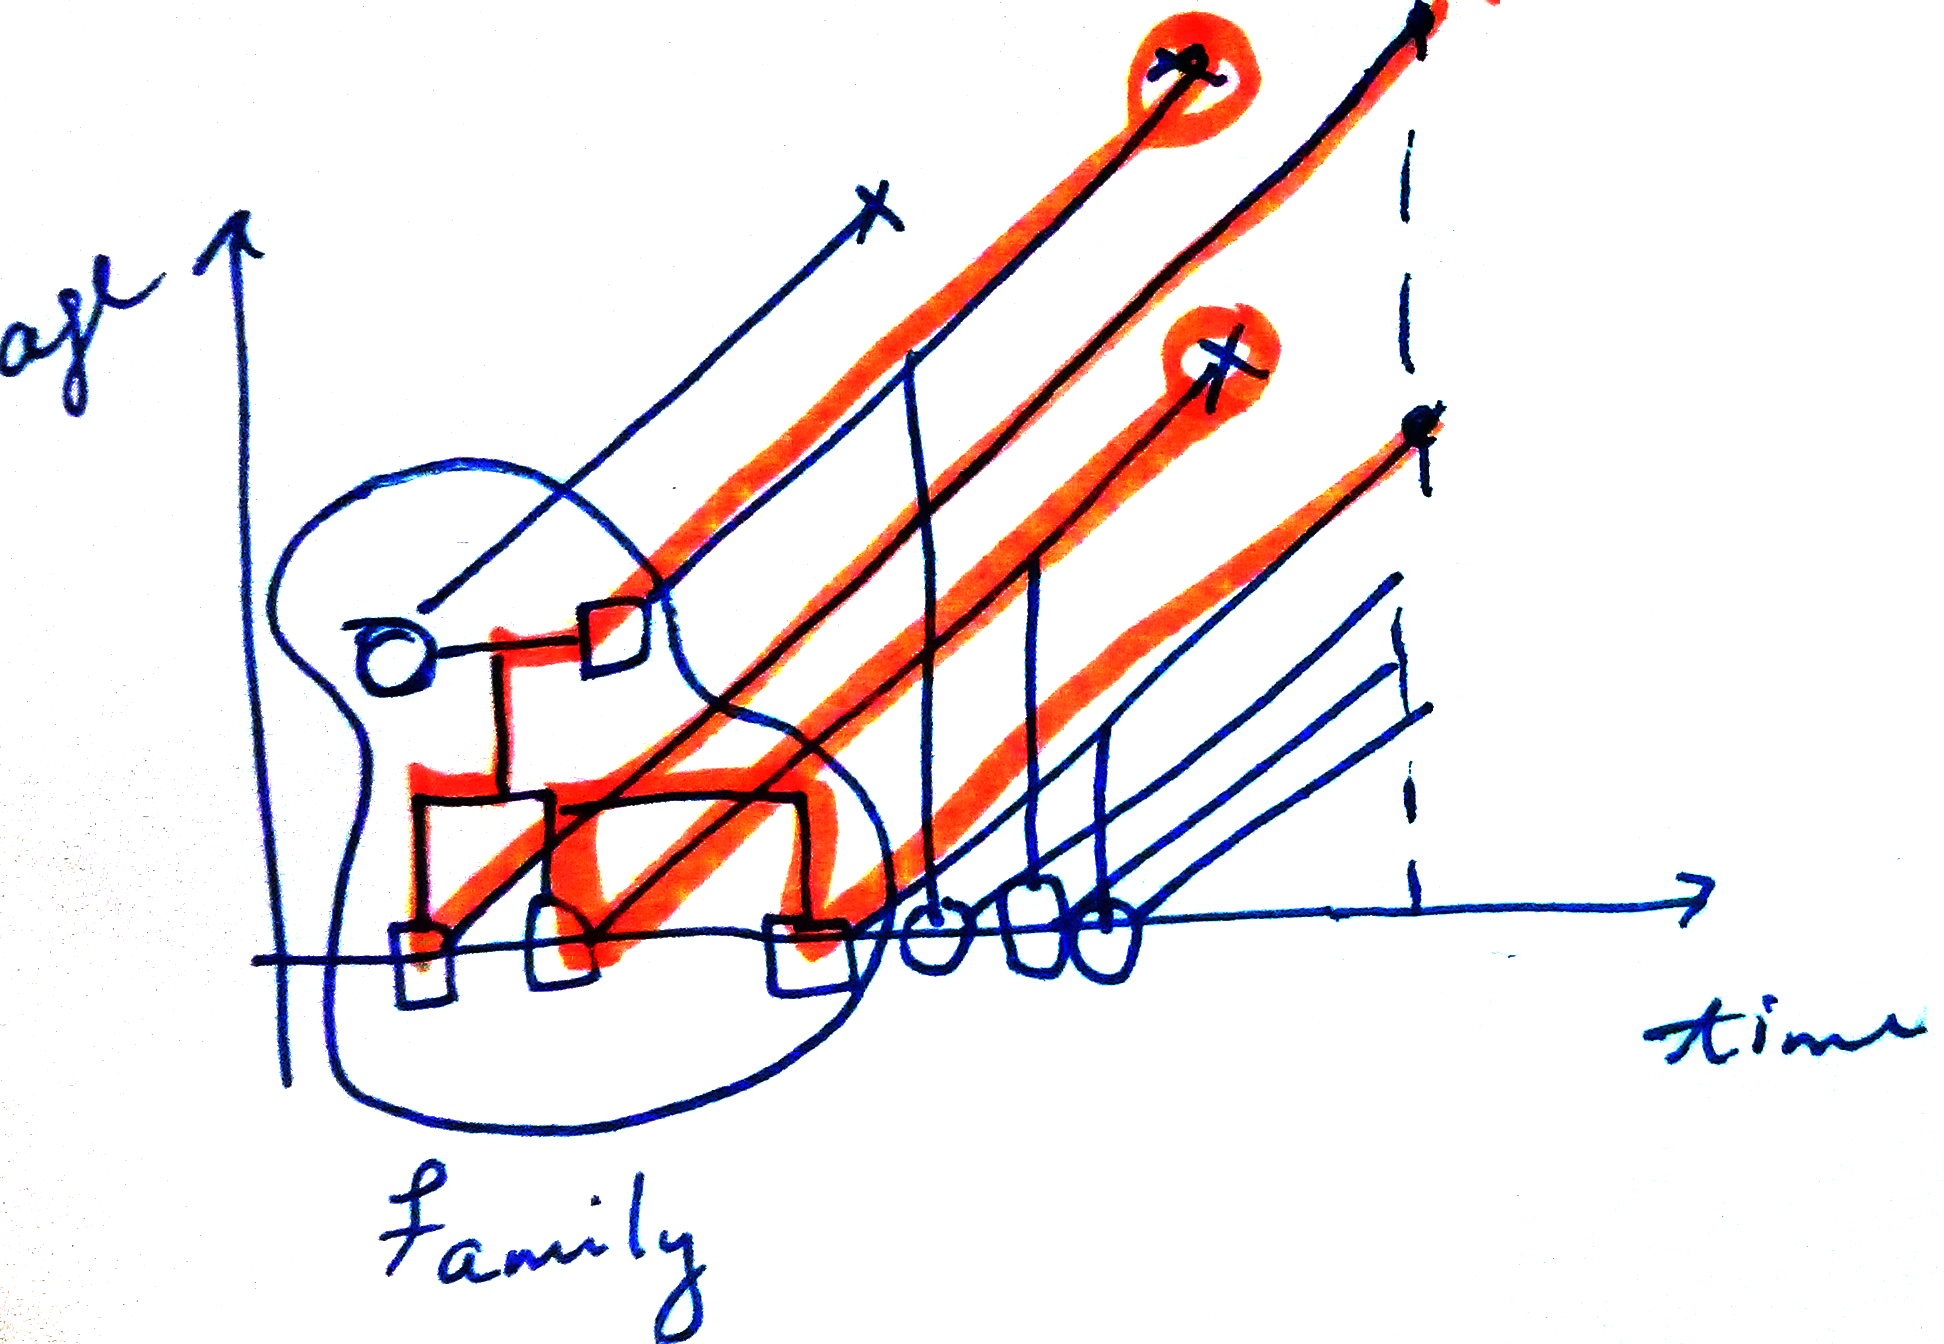 age
time
Family